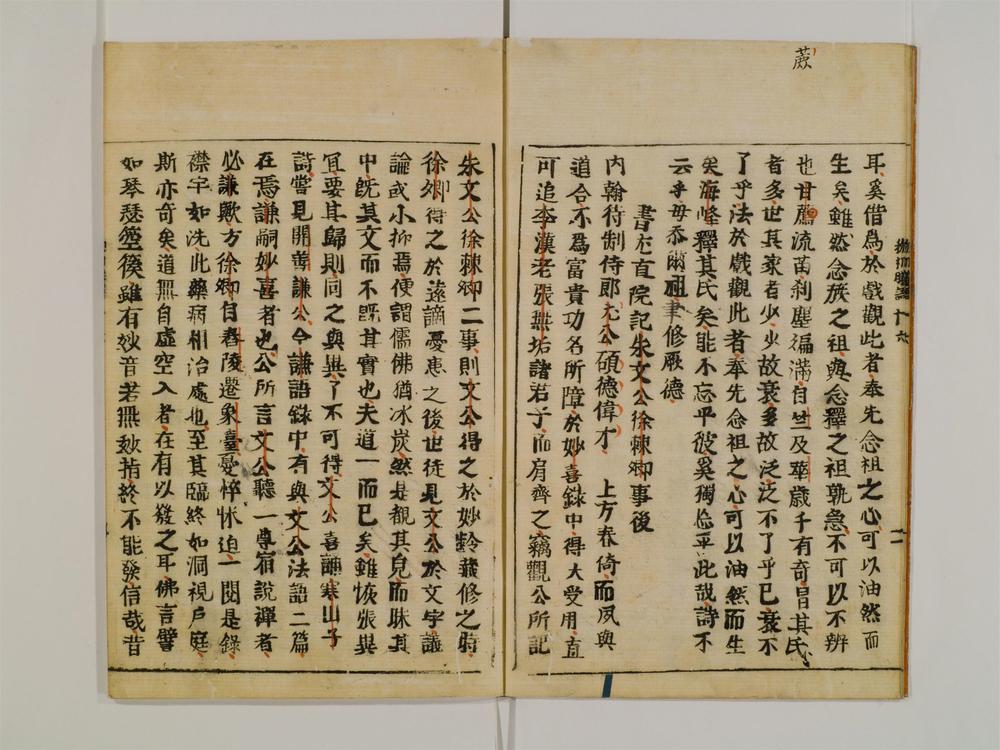 蕨
耳奚啻為於戲觀此者奉先念祖之心可以油然而
生矣雖然念族之祖與念釋之祖孰急不可以不辨
也甘蔗流苗刹塵徧滿自竺及華歲千有奇冒其氏
者多世其家者少少故衰多故泛泛不了乎已衰不
了乎法於戲觀此者奉先念祖之心可以油然而生
矣海峰釋其氏矣能不忘乎彼奚獨忘乎此哉詩不
云乎毋忝爾祖聿修厥德
書尤直院記朱文公徐棘卿事後
内翰待制侍郎尤公碩德偉才 上方春倚而夙與
道合不為富貴功名所障於妙喜錄中得大受用直
可追李漢老張無垢諸君子而肩齊之竊觀公所記
朱文公徐棘卿二事則文公得之於妙齡藏修之時
徐卿得之於遠謫憂患之後世徒見文公於文字議
論或小抑焉便謂儒佛猶冰炭然是觀其皃而昧其
中既其文而不既其實也夫道一而已矣雖恢張異
宜要其歸則同之與異了不可得文公喜誦寒山子
詩嘗見開善謙公今謙語錄中有與文公法語二篇
在焉謙嗣妙喜者也公所言文公聽一尊宿說禪者
必謙歟方徐卿自舂陵遷象臺憂悴怵迫一閱是錄
襟宇如洗此藥病相治處也至其臨終如洞視戶庭
斯亦奇矣道無自虛空入者在有以發之耳佛言譬
如琴瑟箜篌雖有妙音若無妙指終不能發信哉昔